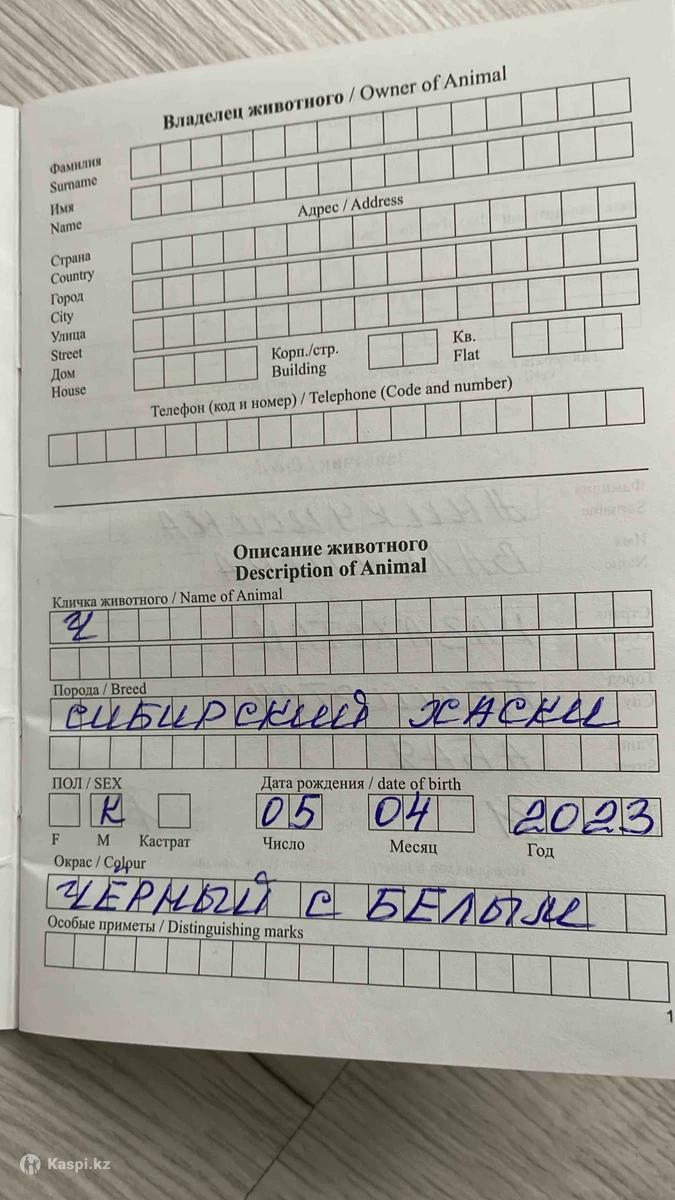 Владелец животного / Owner of Animal
Фамилия
Surname
Имя
Name
Адрес / Address
Страна
Country
Город
City
Улица
Street
Дом
House
Корп./стр.
Building
Кв.
Flat
Телефон (код и номер) / Telephone (Code and number)
Описание животного
Description of Animal
Кличка животного / Name of Animal
Ч
Порода / Breed
СИБИРСКИЙ ХАСКИ
ПОЛ / SEX
Дата рождения / date of birth
К 05 04 2023
F M Кастрат Число Месяц Год
Окрас / Colour
ЧЁРНЫЙ С БЕЛЫМ
Особые приметы / Distinguishing marks
1
Kaspi.kz